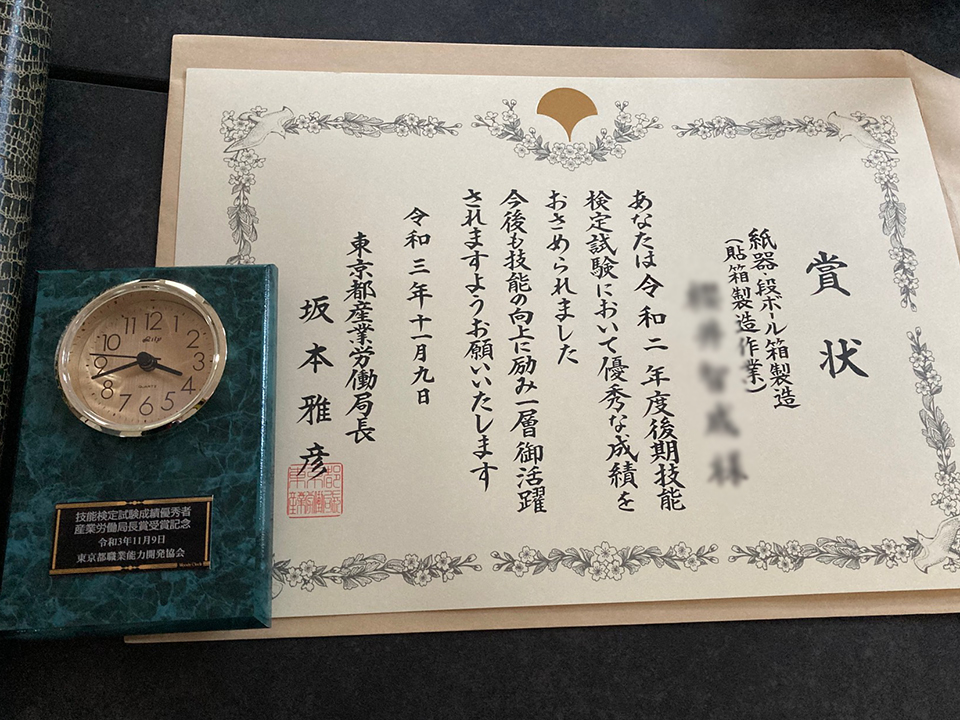 賞状
紙器・段ボール箱製造
(貼箱製造作業)
あなたは令和二年度後期技能
検定試験において優秀な成績を
おさめられました
今後も技能の向上に励み一層御活躍
されますようお願いいたします
令和三年十一月九日
東京都産業労働局長
坂本雅彦
11 12 1
10 2
9 3
8 4
7 6 5
QUARTZ
技能検定試験成績優秀者
産業労働局長賞受賞記念
令和3年11月9日
東京都職業能力開発協会